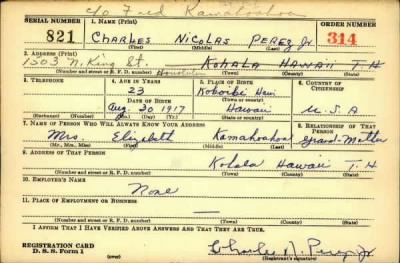 c/o Fred Kamahoahoa
SERIAL NUMBER 1. NAME (Print) ORDER NUMBER
821 CHARLES NICOLAS PEREZ Jr. 314
(First) (Middle) (Last)
2. ADDRESS (Print)
1503 N. King St. Honolulu KOHALA HAWAII T.H
(Number and street or R. F. D. number) (Town) (County) (State)
3. TELEPHONE 4. AGE IN YEARS 5. PLACE OF BIRTH 6. COUNTRY OF CITIZENSHIP
23
DATE OF BIRTH (Town or county)
Aug. 30 1917 Hawaii U.S.A
(Exchange) (No.) (Mo.) (Day) (Yr.) (State or country)
7. NAME OF PERSON WHO WILL ALWAYS KNOW YOUR ADDRESS 8. RELATIONSHIP OF THAT PERSON
Mrs. Elizabeth Kamahoahoa Grand-Mother
(Mr., Mrs., Miss) (First) (Middle) (Last)
9. ADDRESS OF THAT PERSON
Kohala Hawaii T.H
(Number and street or R. F. D. number) (Town) (County) (State)
10. EMPLOYER'S NAME
None
11. PLACE OF EMPLOYMENT OR BUSINESS
—
(Number and street or R. F. D. number) (Town) (County) (State)
I AFFIRM THAT I HAVE VERIFIED ABOVE ANSWERS AND THAT THEY ARE TRUE.
REGISTRATION CARD
D. S. S. Form 1 Charles N. Perez Jr.
(Registrant's signature)